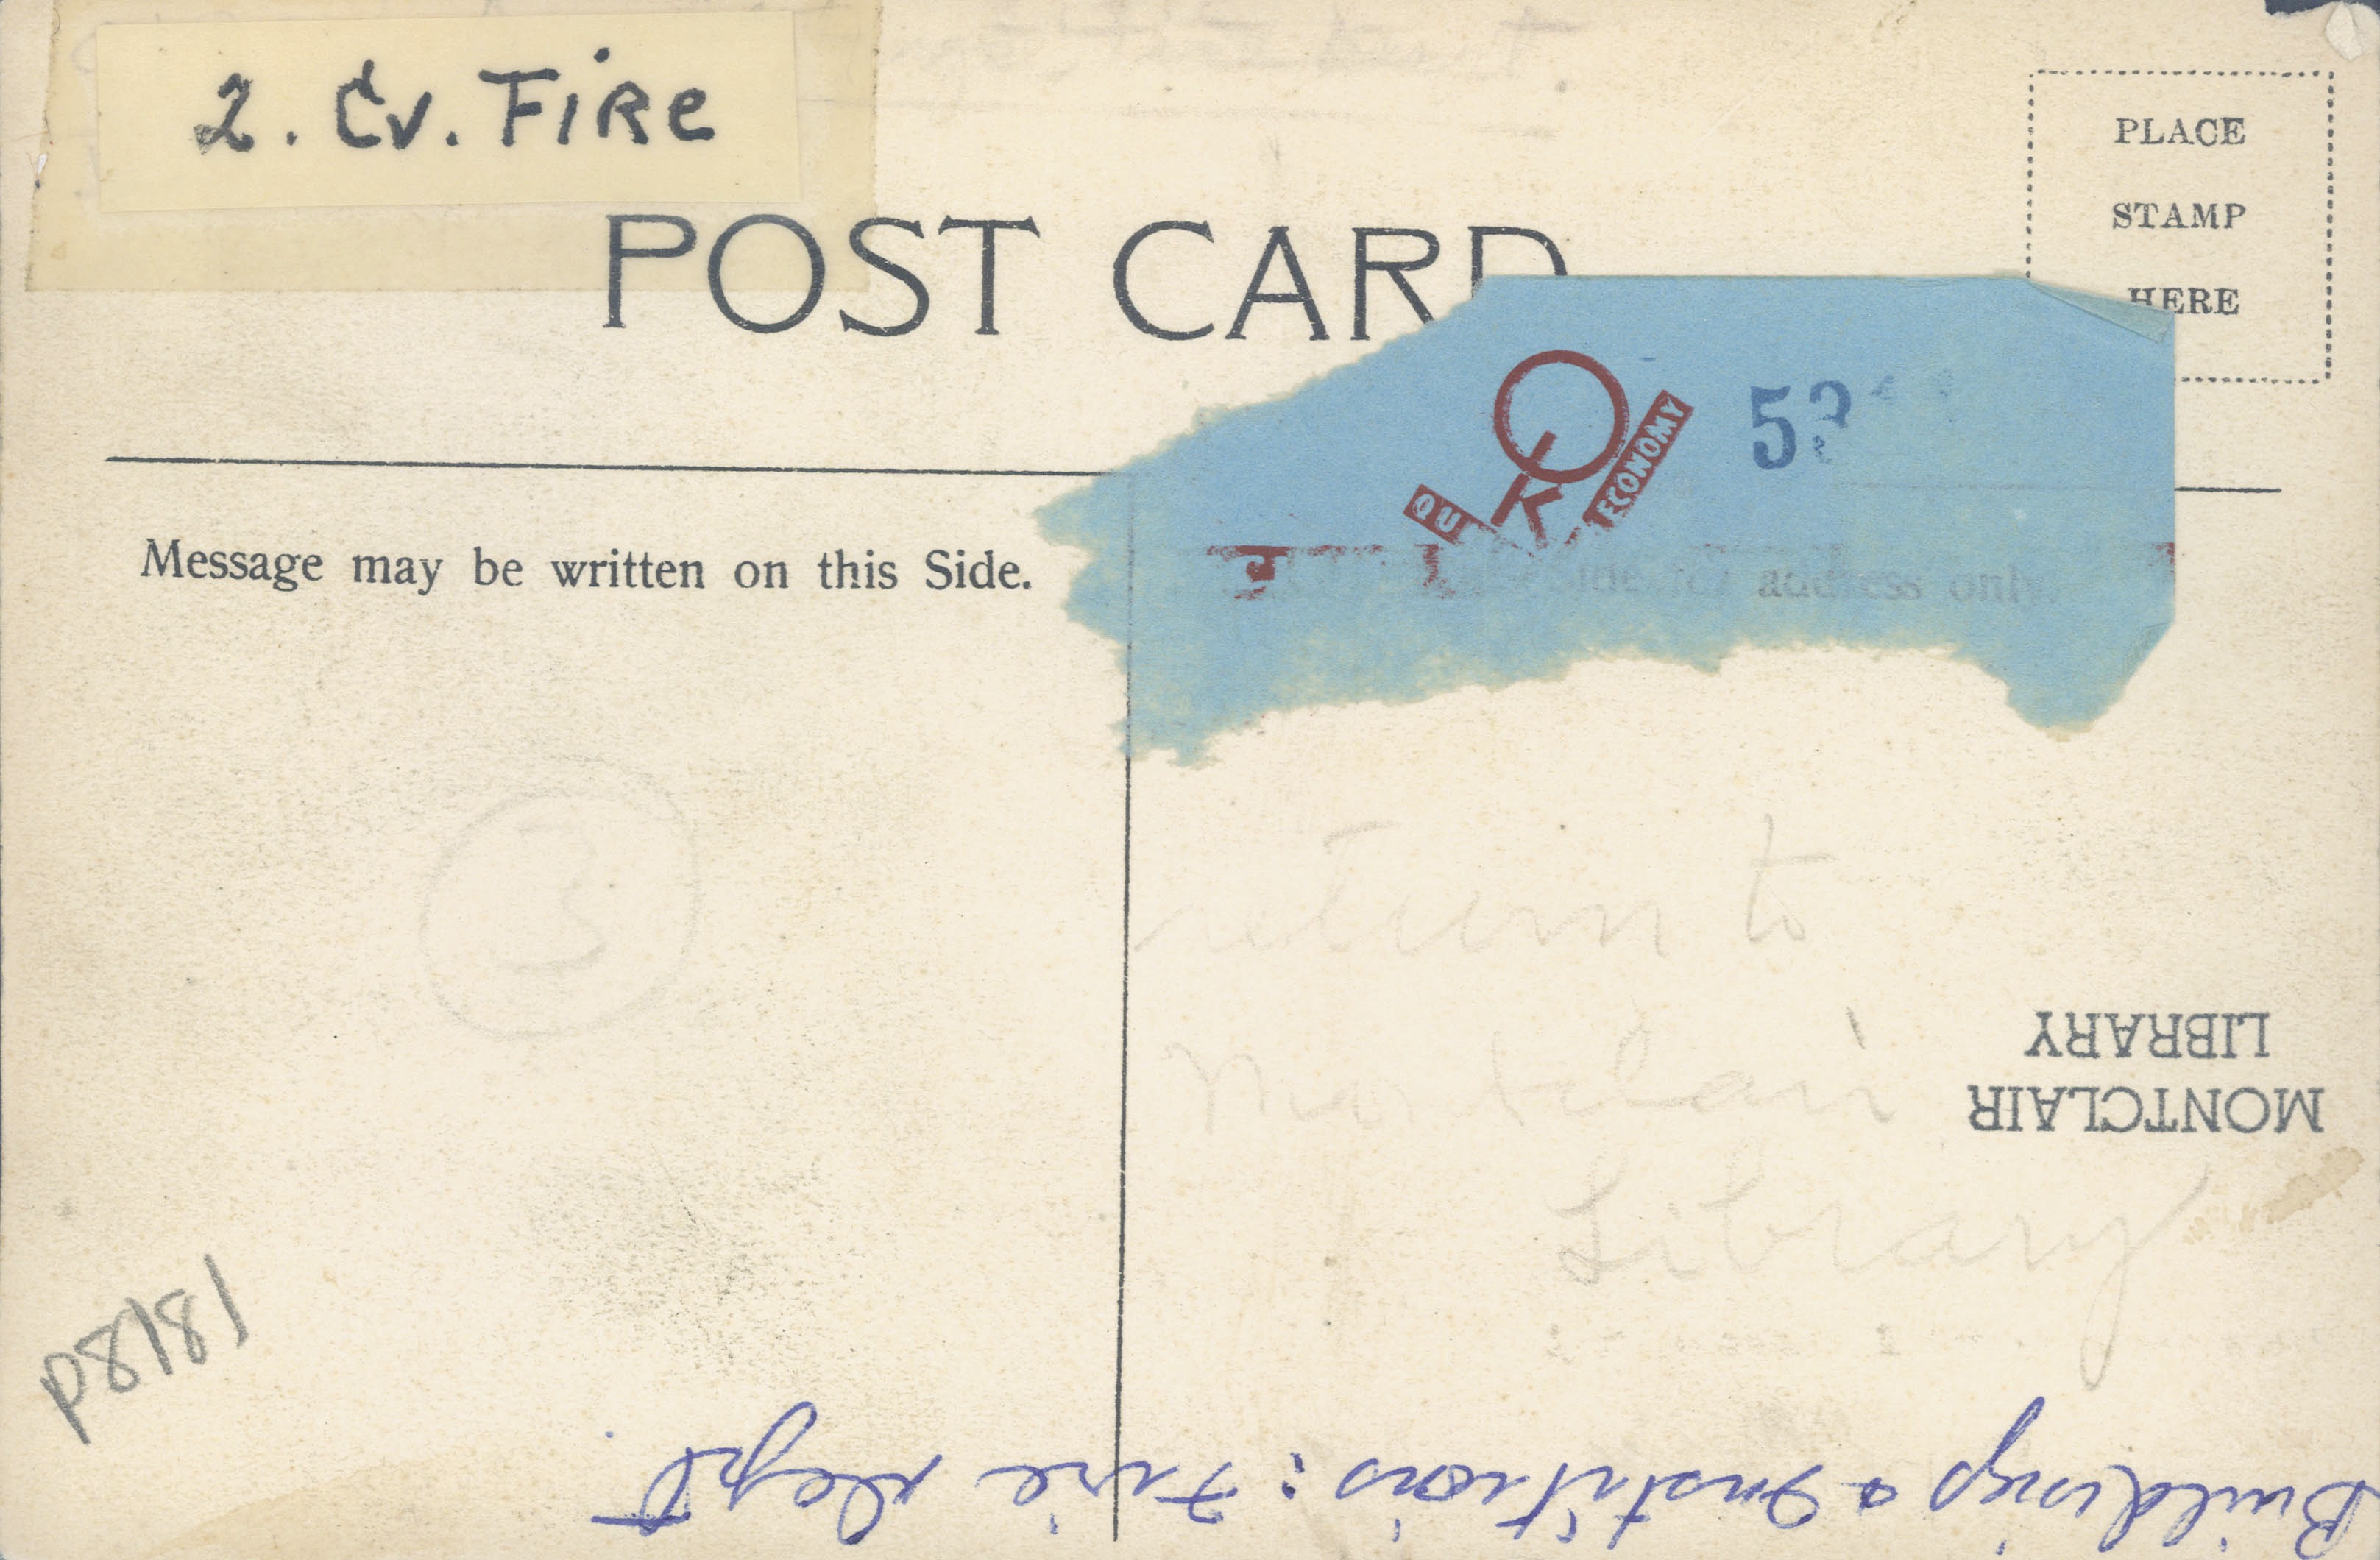 2. Cv. FIRE
POST CARD
PLACE
STAMP
HERE
ECONOMY
OK
53
Message may be written on this Side.
address only.
3
return to
Montclair
Library
MONTCLAIR
LIBRARY
P8181
Buildings & Institutions: Fire Dept.